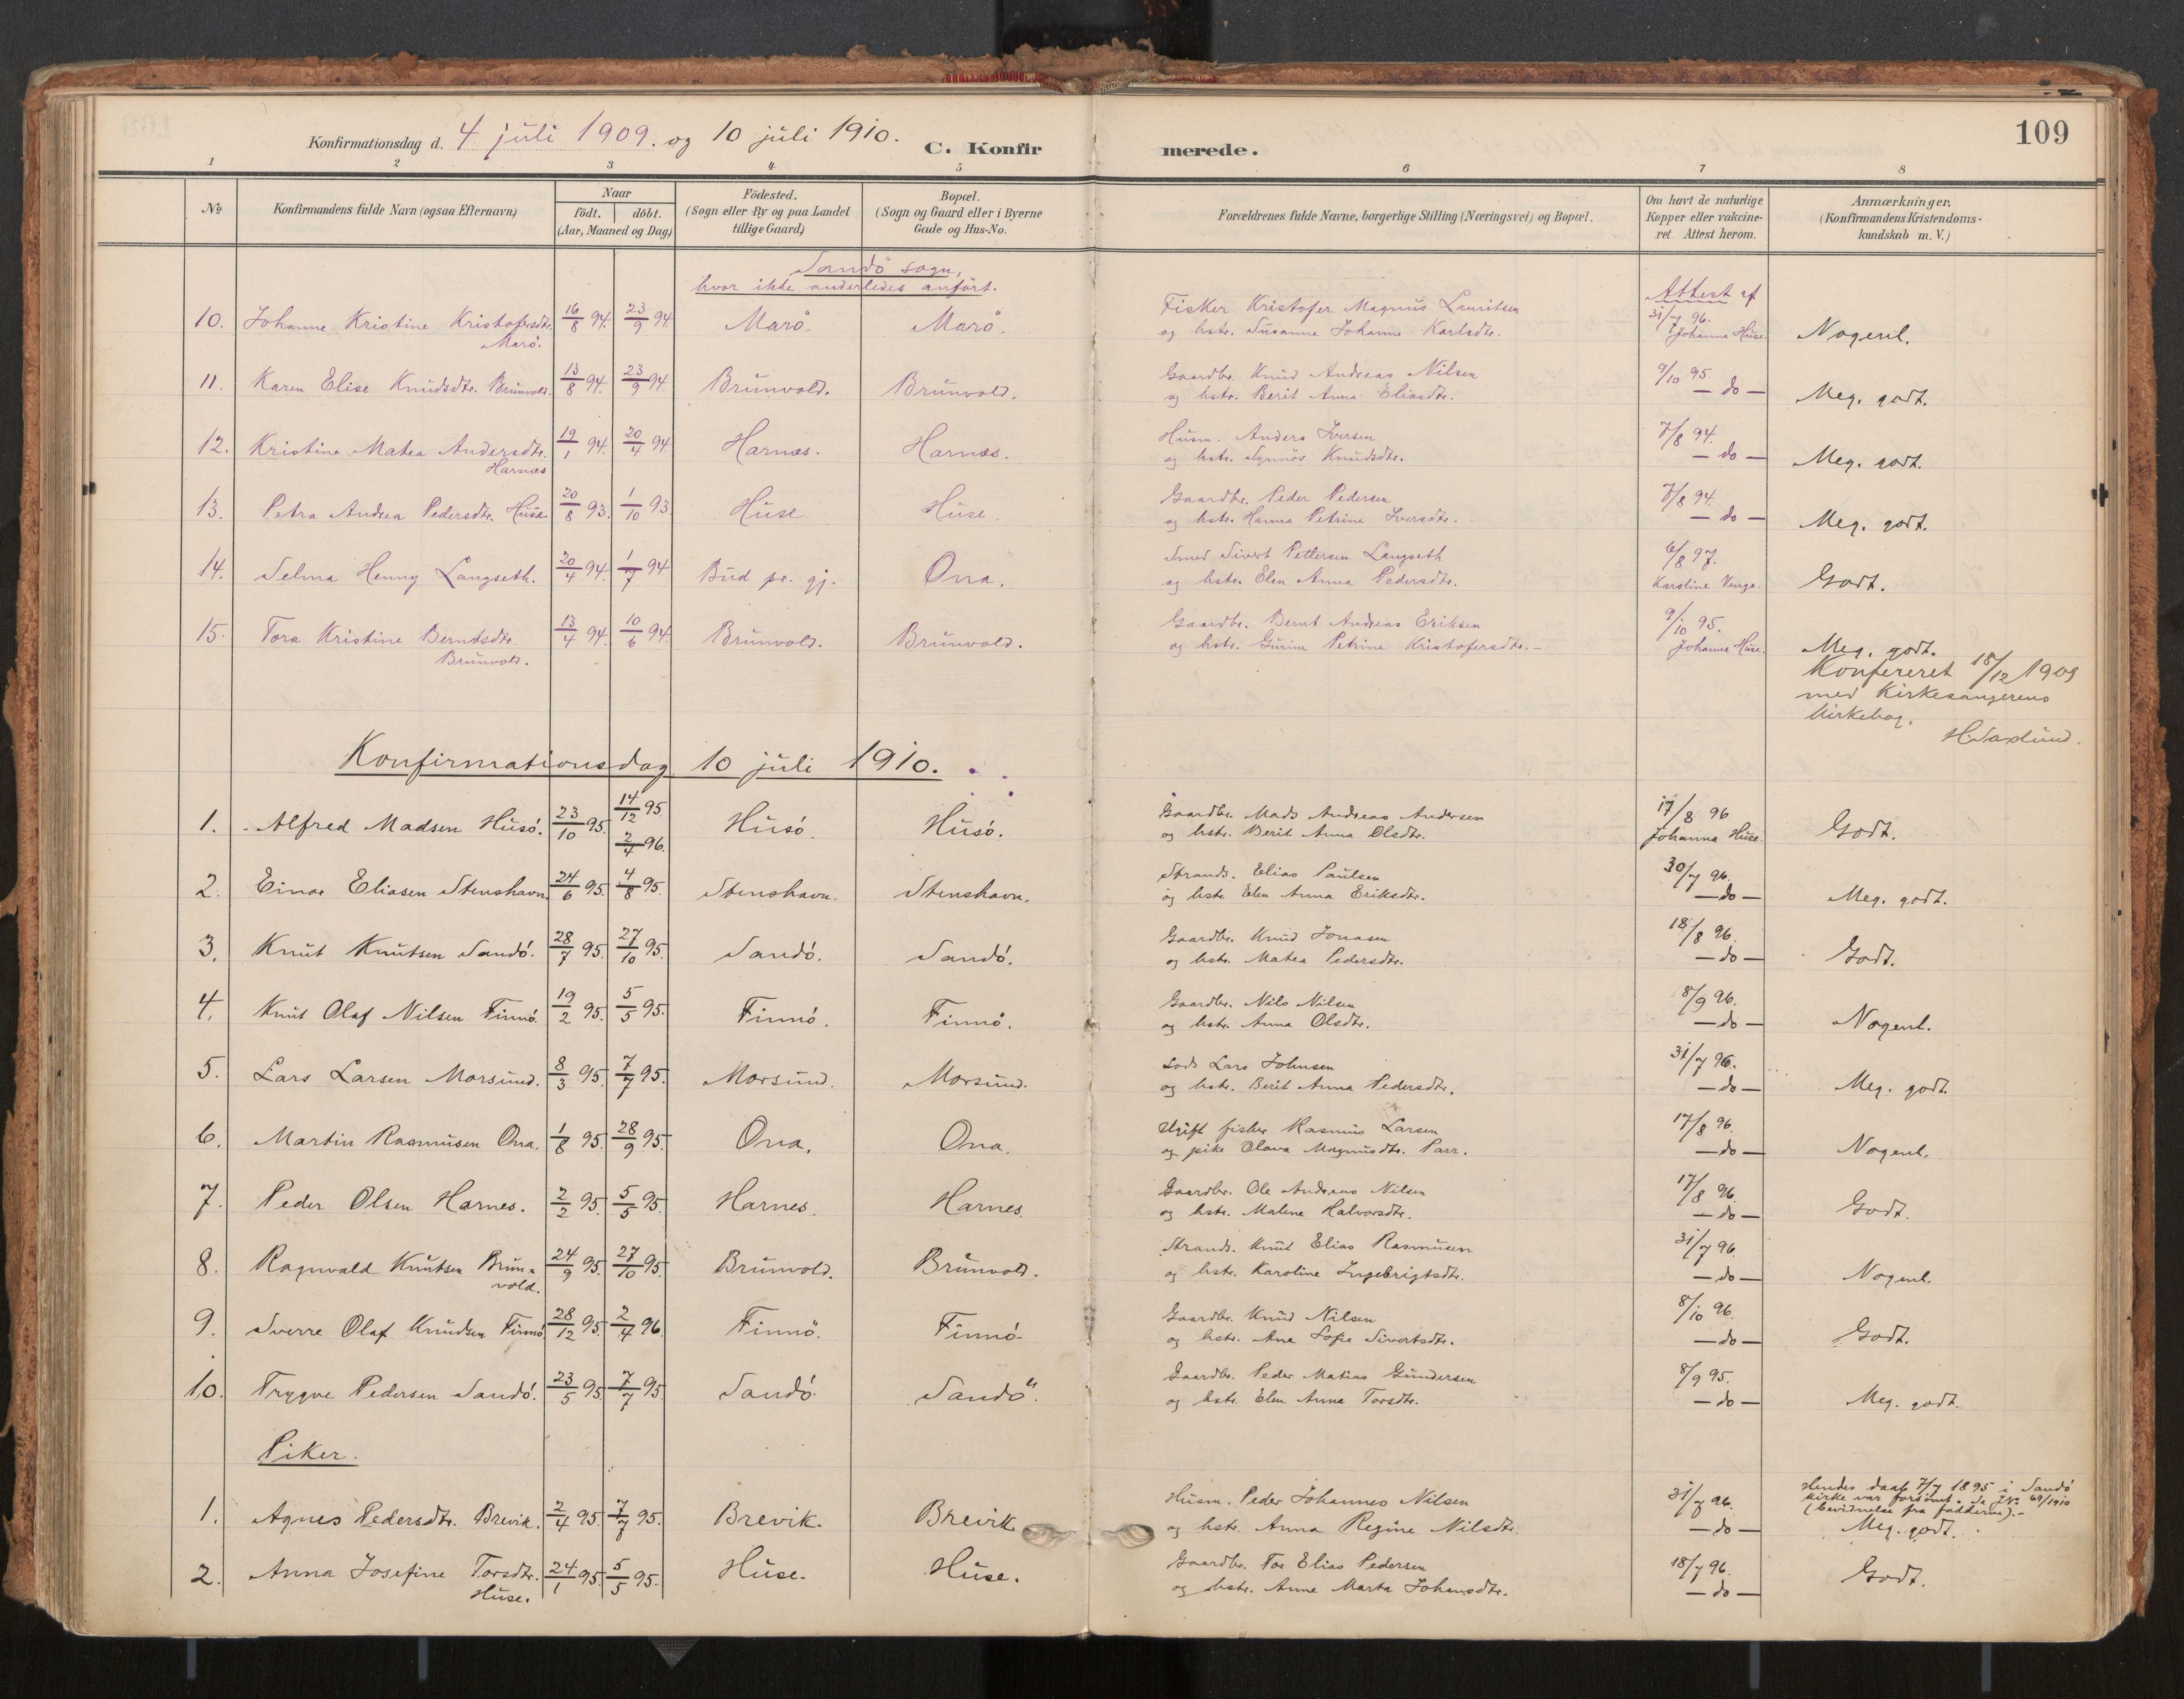 109
Konfirmationsdag d. 4 juli 1909. og 10 juli 1910.
C. Konfirmerede.
1 2 3 4 5 6 7 8
No
Konfirmandens fulde Navn (ogsaa Efternavn)
Naar
födt. döbt.
(Aar, Maaned og Dag)
Födested.
(Sogn eller By og paa Landet
tillige Gaard)
Bopæl.
(Sogn og Gaard eller i Byerne
Gade og Hus-No.
Forældrenes fulde Navne, borgerlige Stilling (Næringsvei) og Bopæl.
Om havt de naturlige
Kopper eller vakcine-
ret. Attest herom.
Anmærkninger.
(Konfirmandens Kristendoms-
kundskab m. V.)
Sandö sogn,
hvor ikke anderledes anfört.
Attest af
10. Johanne Kristine Kristofersdtr. 16/8 94. 23/9 94. Marö. Marö. Fisker Kristofer Magnus Lauritsen 31/7 96.
Marö. og hstr. Susanne Johanna Karlsdtr. Johanna Huse. Nogenl.
11. Karen Elise Knudsdtr. Brunvold. 13/8 94. 23/9 94. Brunvold. Brunvold. Gaardbr. Knud Andreas Nilsen 9/10 95.
og hstr. Berit Anna Eliasdtr. — do — Meg. godt.
12. Kristine Matea Andersdtr. 19/1 94. 20/4 94. Harnæs. Harnæs. Husm. Anders Iversen 7/8 94.
Harnæs og hstr. Synnöv Knudsdtr. — do — Meg. godt.
13. Petra Andrea Pedersdtr. Huse 20/8 93. 1/10 93. Huse Huse Gaardbr. Peder Pedersen 7/8 94.
og hstr. Hanna Petrine Iversdtr. — do — Meg. godt.
14. Selma Henny Langseth. 20/4 94. 1/7 94. Bud pr. gj. Ona. Smed Sivert Pettersen Langseth 6/8 97.
og hstr. Elen Anna Pedersdtr. Karoline Venge. Godt.
15. Tora Kristine Berntsdtr. 13/4 94. 10/6 94. Brunvold. Brunvold. Gaardbr. Bernt Andreas Eriksen 9/10 95.
Brunvold. og hstr. Gurine Petrine Kristofersdtr. Johanna Huse. Meg. godt.
Konfereret 18/12 1909
med Kirkesangerens
Kirkebog.
H. Saxlund.
Konfirmationsdag 10 juli 1910.
1. Alfred Madsen Husö. 23/10 95. 14/12 95. 2/4 96. Husö. Husö. Gaardbr. Mads Andreas Andersen 17/8 96
og hstr. Berit Anna Olsdtr. Johanna Huse. Godt.
2. Einar Eliasen Stenshavn. 24/6 95. 4/8 95. Stenshavn. Stenshavn. Strands. Elias Paulsen 30/7 96.
og hstr. Elen Anna Eriksdtr. — do — Meg. godt.
3. Knut Knutsen Sandö. 28/7 95. 27/10 95. Sandö. Sandö. Gaardbr. Knud Jonasen 18/8 96.
og hstr. Matea Pedersdtr. — do — Godt.
4. Knut Olaf Nilsen Finnö. 19/2 95. 5/5 95. Finnö. Finnö. Gaardbr. Nils Nilsen 8/9 96.
og hstr. Anna Olsdtr. — do — Nogenl.
5. Lars Larsen Morsund. 8/3 95. 7/7 95. Morsund. Morsund. Lods Lars Johnsen 31/7 96.
og hstr. Berit Anna Pedersdtr. — do — Meg. godt.
6. Martin Rasmusen Ona. 1/8 95. 28/9 95. Ona. Ona. Ugift fisker Rasmus Larsen 17/8 96.
og pike Olava Magnusdtr. Parr. — do — Nogenl.
7. Peder Olsen Harnes. 2/2 95. 5/5 95. Harnes. Harnes. Gaardbr. Ole Andreas Nilsen 17/8 96.
og hstr. Malene Halvorsdtr. — do — Godt.
8. Ragnvald Knutsen Brun- 24/9 95. 27/10 95. Brunvold. Brunvold. Strands. Knut Elias Rasmusen 31/7 96.
vold. og hstr. Karoline Ingebrigtsdtr. — do — Nogenl.
9. Sverre Olaf Knudsen Finnö 28/12 95. 2/4 96. Finnö. Finnö. Gaardbr. Knud Nilsen 8/10 96.
og hstr. Ane Sofie Sivertsdtr. — do — Godt.
10. Trygve Pedersen Sandö. 23/5 95. 7/7 95. Sandö. Sandö. Gaardbr. Peder Matias Gundersen 8/9 95.
og hstr. Elen Anna Torsdtr. — do — Meg. godt.
Piker.
1. Agnes Pedersdtr. Brevik. 2/4 95. 7/7 95. Brevik. Brevik Husm. Peder Johannes Nilsen 31/7 96. Hendes daab 7/7 1895 i Sandö
kirke var forsömt. Se J№ 69/1910
(bevidnelse fra fadderne).-
og hstr. Anna Regine Nilsdtr. — do — Meg. godt.
2. Anna Josefine Torsdtr. 24/1 95. 5/5 95. Huse. Huse. Gaardbr. Tor Elias Pedersen 18/7 96.
Huse. og hstr. Anne Marta Johansdtr. — do — Godt.